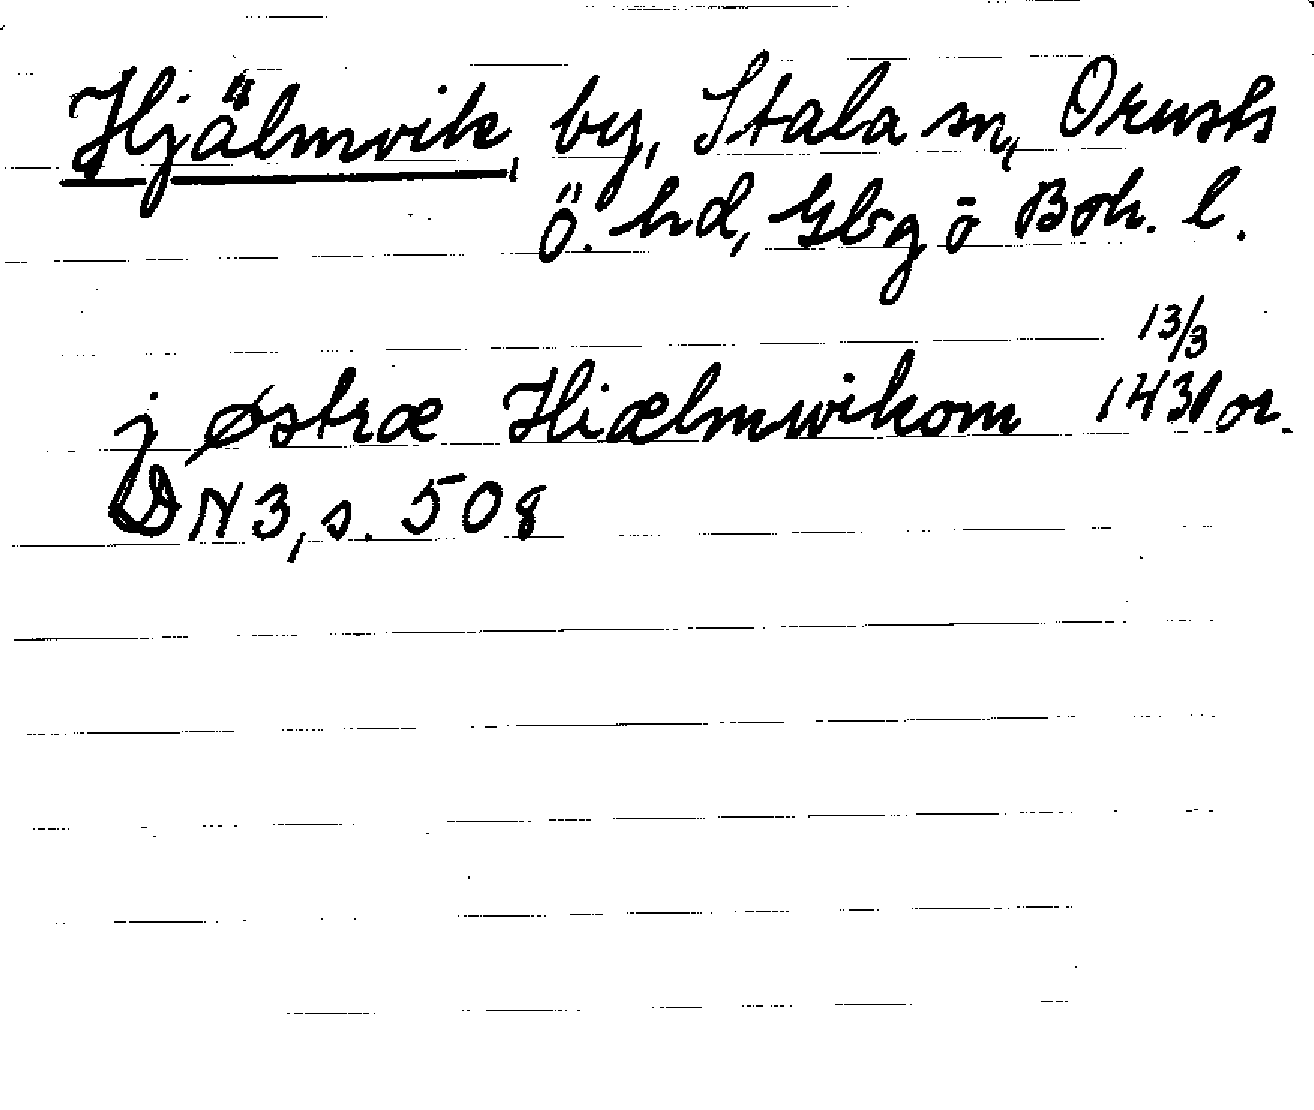 Hjälmvik, by, Stala sn, Orusts
Ö. hd, Gbg o Boh. l.
13/3
j østræ Hiælmwikom 1431 or.
DN 3, s. 508